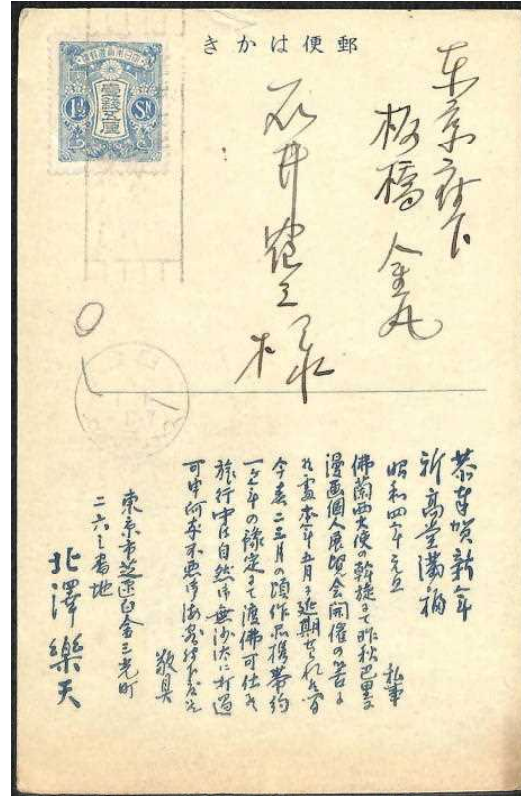 郵便はかき
大日本帝國郵便
壹錢五厘
1½ Sn
東京府下
板橋 金丸
石井鶴三様
恭奉賀新年
祈高堂満福
昭和四年元旦
私事
佛蘭西大使の斡旋にて昨秋巴里に
漫画個人展覧会開催の筈に
有之處本年五月に延期せられ
今春二三月の頃作品携帯約
一ヶ年の豫定にて渡佛可仕候
旅行中は自然御無沙汰に打過
可申何卒不悪御海容
敬具
東京市芝区白金三光町
二六三番地
北澤樂天